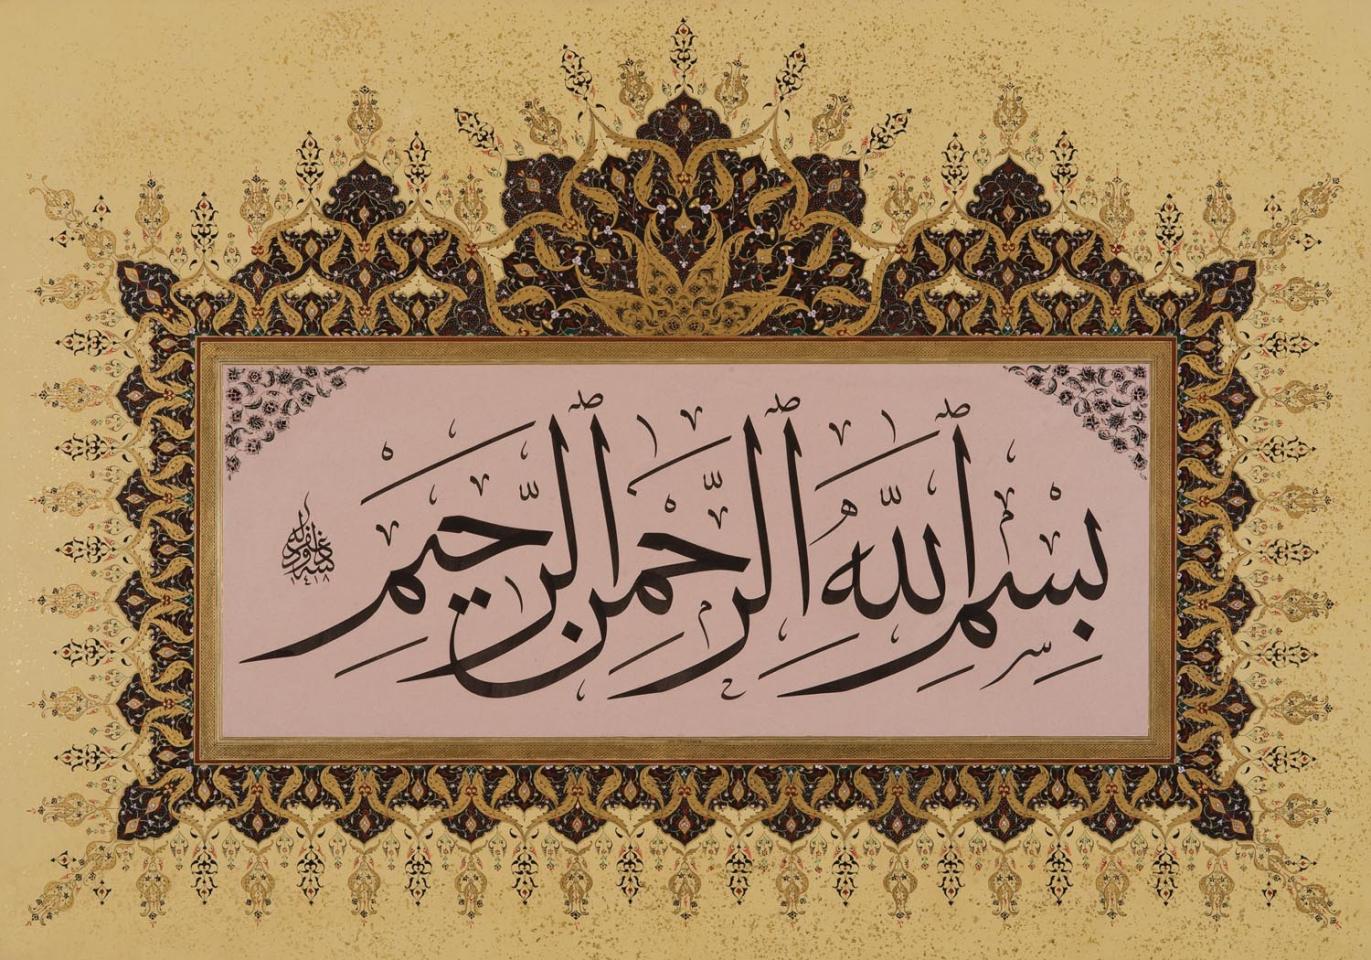 بِسْمِ اللّٰهِ الرَّحْمٰنِ الرَّحِيمِ
١٤١٨